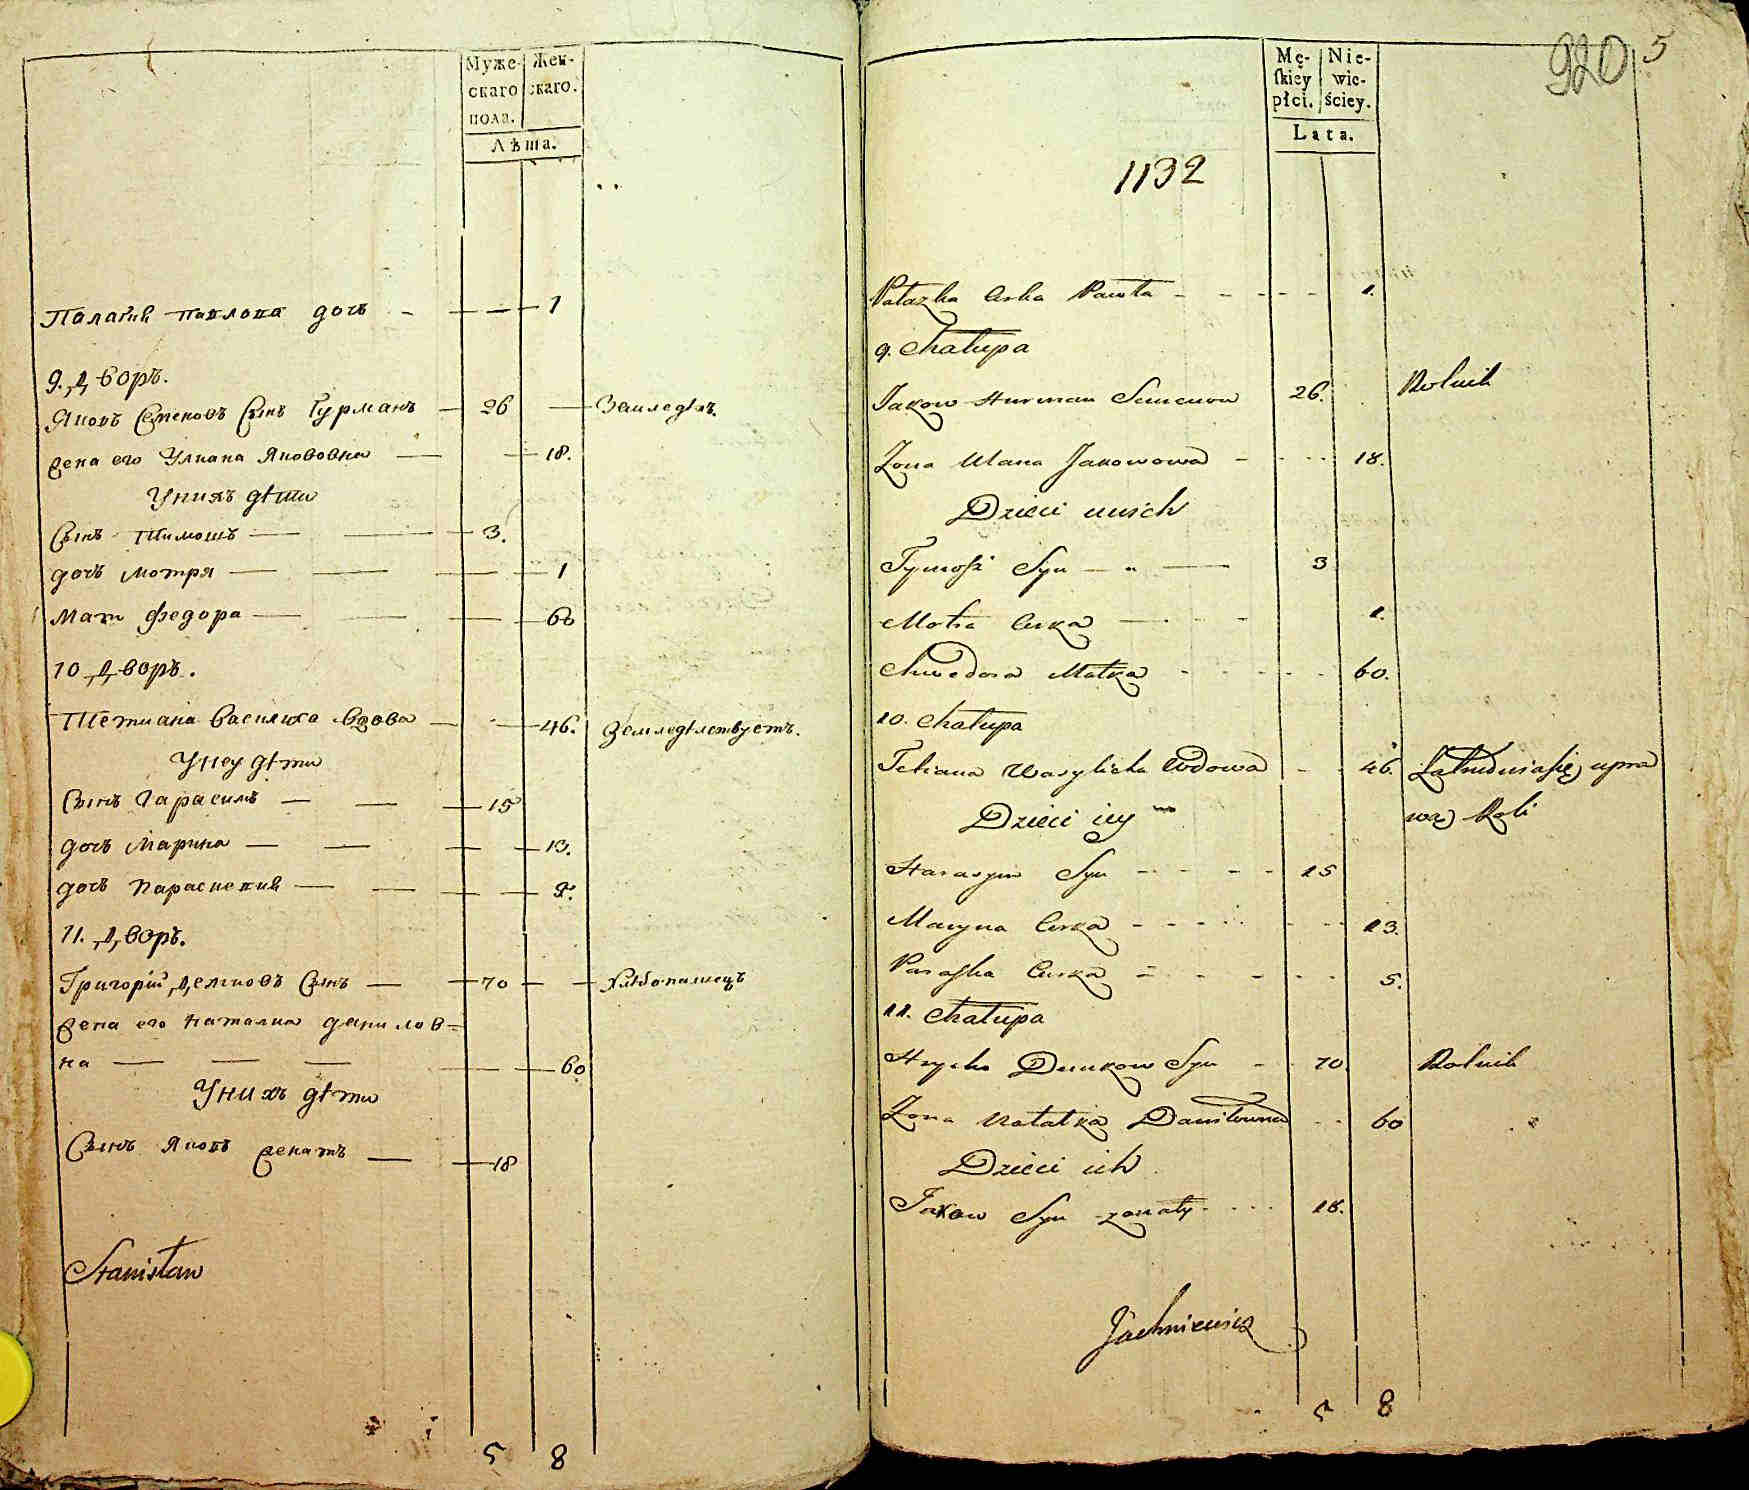 Муже-
скаго
пола.
Жен-
скаго.
Лѣта.
Палагия павлова дочь 1
9. Дворъ.
Яковъ Семеновъ Сынъ Гурманъ 26 Земледѣлъ.
жена его Улиана Якововна 18.
У нихъ дѣти
Сынъ Тимошъ 3.
дочъ Мотря 1
Мати Федора 60
10 Дворъ.
Тетиана Василиха вдова 46. Земледѣлствуетъ.
У ней дѣти
Сынъ Гарасимъ 15
дочъ Марина 13.
дочъ Параскевия
11. Дворъ.
Григорій Демковъ Сынъ 70 Хлѣбопашецъ
жена его Наталиа данилов=
на 60
У нихъ дѣти
Сынъ Яковъ женатъ 18
Stanisław
5 8
920 5
Mę-
ſkiey
płci.
Nie-
wie-
ściey.
Lata.
1132
Pałazka Curka Pawła 1.
9. Chałupa
Jakow Hurman Semenow 26. Rolnik
Żona Ulana Jakowowa 18.
Dzieci unich
Tymosz Syn 3
Motra Curka 1.
Chwedora Matka 60.
10. Chałupa
Tetiana Wasylicha Wdowa 46. Zatrudnia się upra
wą Roli
Dzieci iey
Harasym Syn 15
Maryna Curka 13.
Paraſka Curka 5.
11. Chałupa
Hryćko Demkow Syn 70. Rolnik
Żona Natalka Daniłowna 60
Dzieci ich
Jakow Syn żonaty 18.
Jachniewicz
5 8